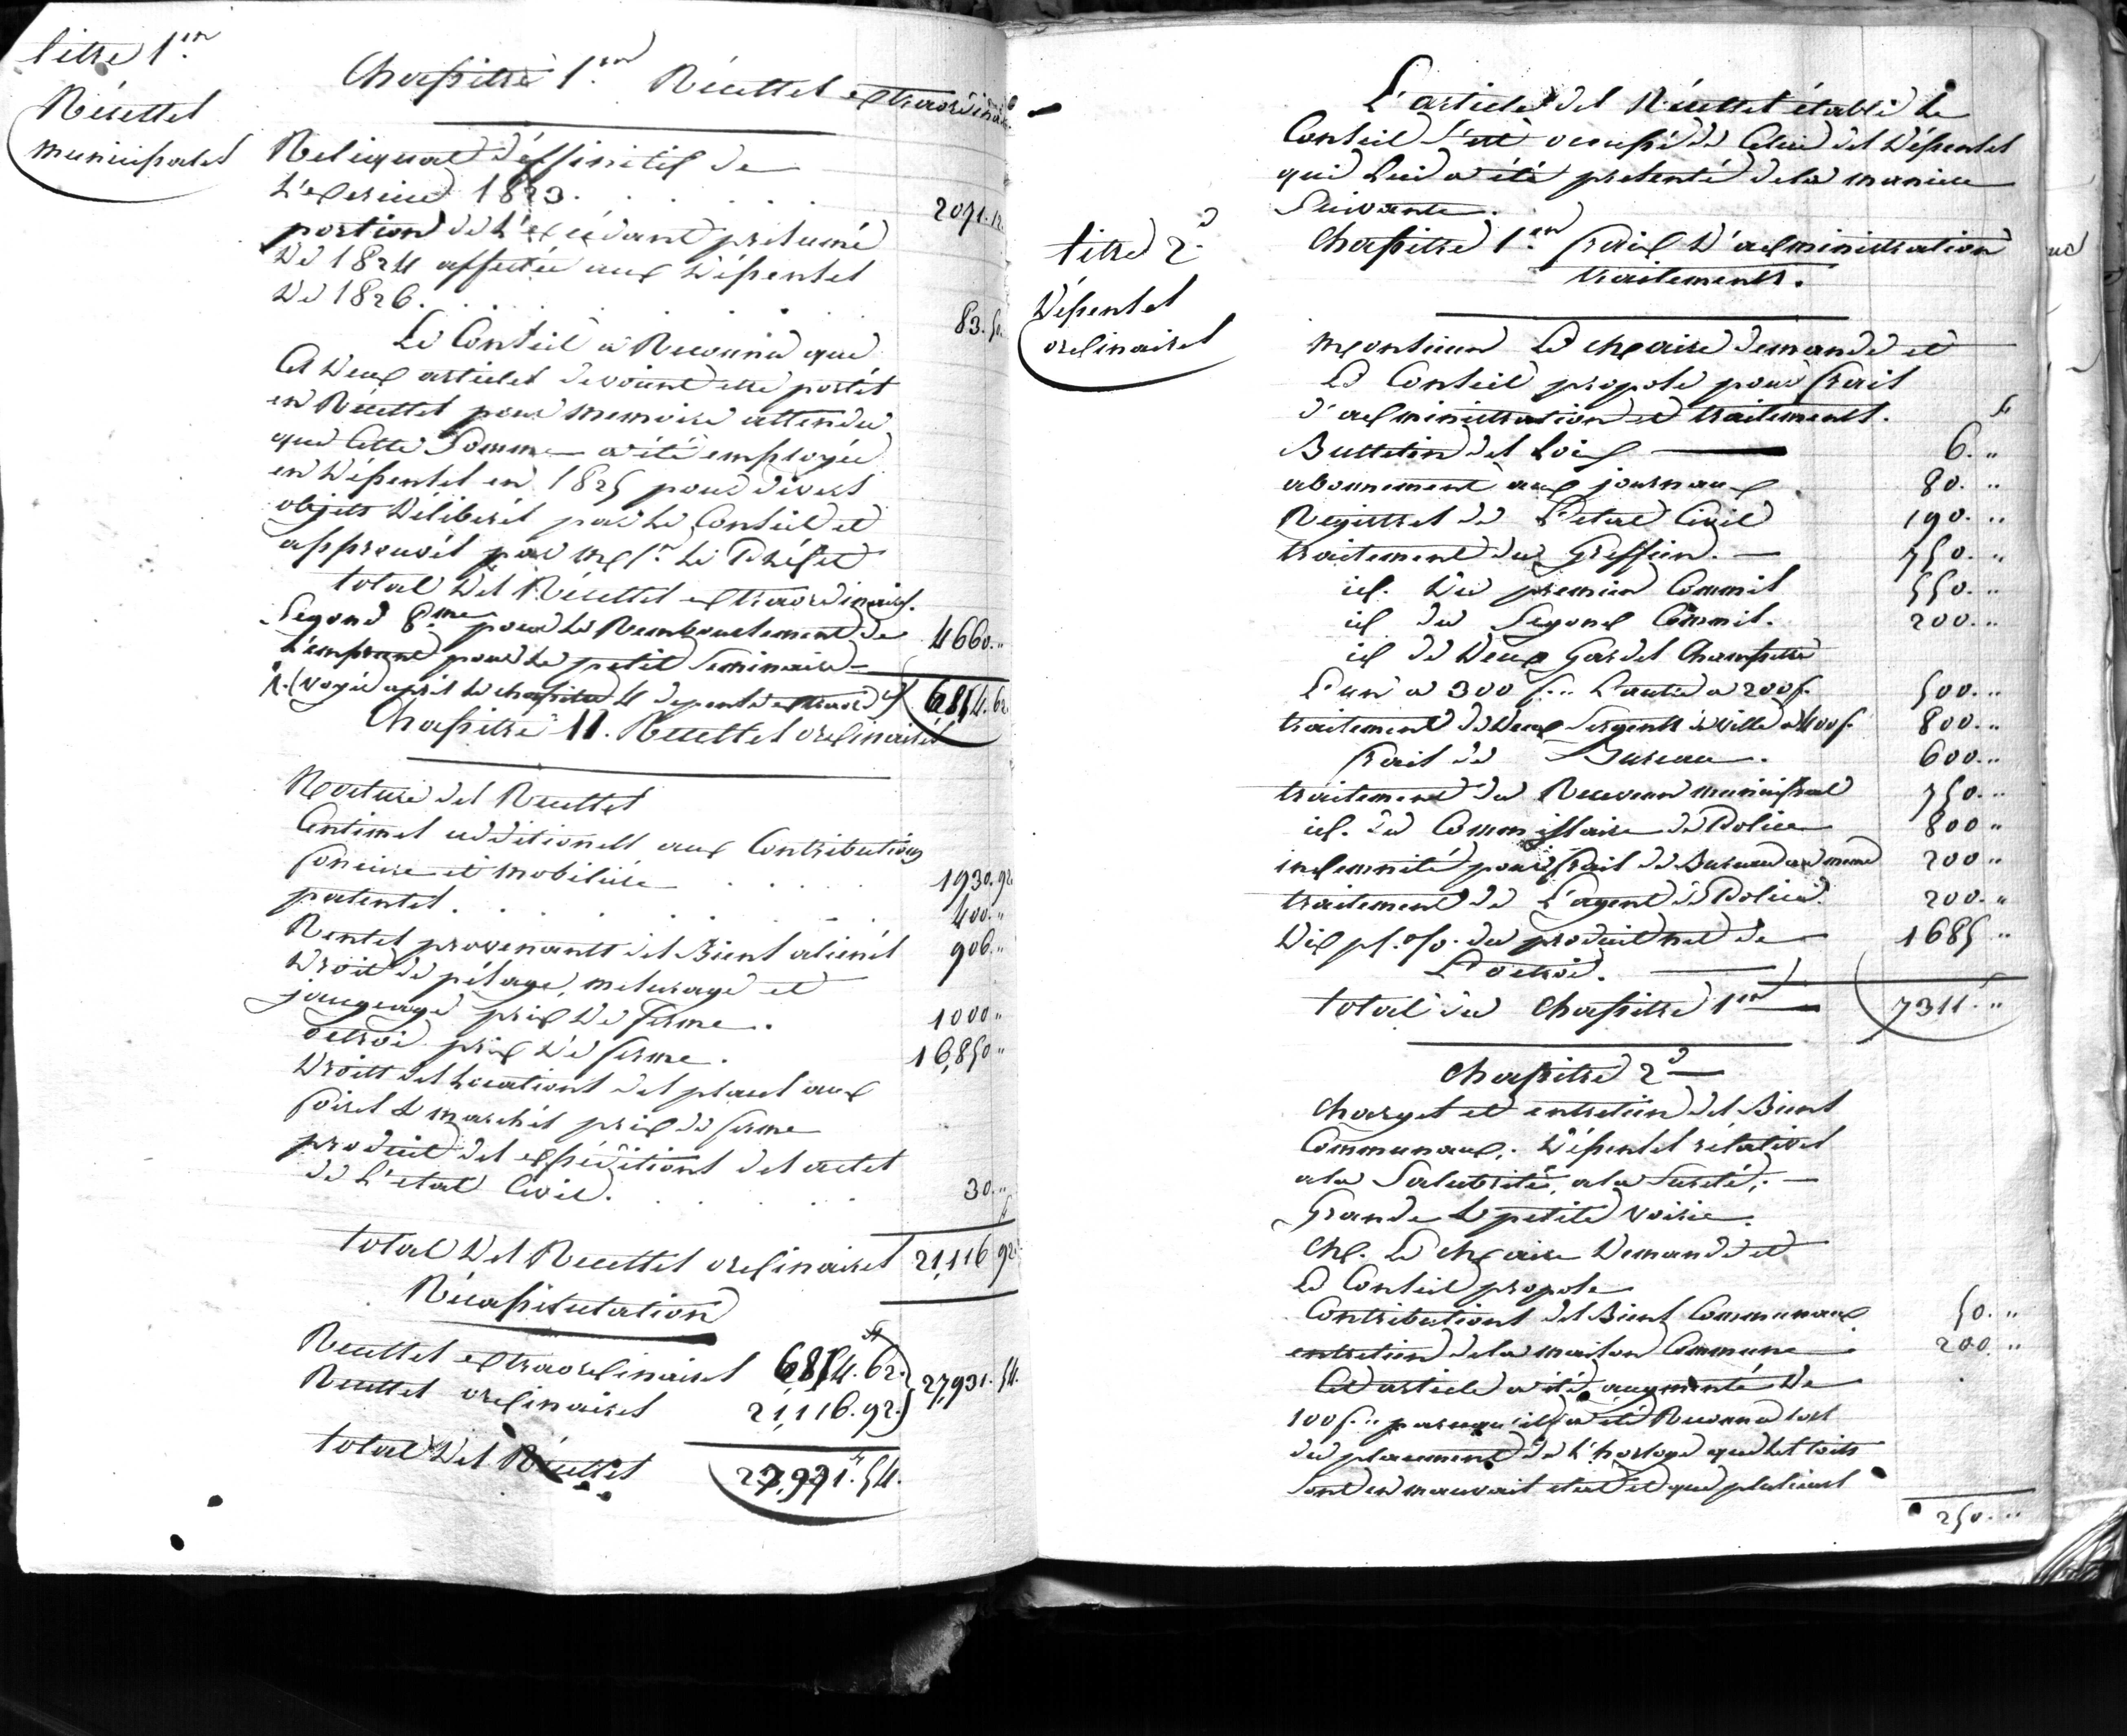 titre 1.er
Récettes
municipales
Chapitre 1.er Récettes extraordinaires
Reliquat déffinitif de
L'exercice 1823. . . . . . 2071.12
portion de L'excédant présumé
De 1824 affectée aux Dépenses
De 1826. . . . . . 83.50
Le Conseil a Reconnu que
Ces Deux articles devoient etre portés
en Récettes pour memoire attendu
que Cette Somme a été employée
en Dépenses en 1825 pour divers
objets Délibérés par Le Conseil et
approuvés par Mr. Le Préfet
total Des Récettes extraordinaires.
Segond 8.me pour Le Remboursement de
L'emprunt pour Le petit Seminaire 4660."
N. (voyez après Le chapitre 4 depenses extraord.es) 6814.62
Chapitre II. Recettes ordinaires
Nature des Recettes
Centimes additionels aux Contributions
fonciere et mobiliére . . . . 1930.92
patentes. . . . . . 400."
Rentes provenants des Biens aliénés 906."
Droit de pésage, mesurage et
jaugeage prix De ferme. 1000"
octroi prix De ferme. 16,850"
Droits des Locations des places aux
foires & marchés prix de ferme
produit des expéditions des actes
de L'etat Civil. . . . . 30."
total Des Recettes ordinaires 21,116 92
Récapitulation
Recettes extraordinaires 6814.62. } 27,931.54.
Recettes ordinaires 21,116.92.
total Des Récettes 27,931.54.
L'article des Récettes établi Le
Conseil s'est occupé de Celui des Dépenses
qui Lui a été presenté de la maniere
Suivante.
titre 2.d
Dépenses
ordinaires
Chapitre 1.er fraix D'administration
traitements.
Monsieur Le Maire demande et
Le Conseil propose pour frais
d'administration et traitements. fr
Bulletin des Loix 6."
abonnement aux journaux 80."
Registres de L'etat Civil 190."
traitement du Greffier. 750."
id. Du premier Commis 550."
id du Segond Commis. 200."
id de Deux Gardes Champetre
L'un a 300 f." L'autre a 200 f. 500."
traitement de Deux Sergents de ville a 400 f. 800."
frais de Bureau. 600."
traitement du Receveur municipal 750."
id. du Commissaire de Police 800"
indemnité pour frais de Bureau au meme 200"
traitement de L'agent de Police. 200."
Dix p. o/o. du produit net de 1685"
L'octroi.
total du Chapitre 1.er 7311."
Chapitre 2.d
Charges et entretien des Biens
Communaux. Dépenses rélatives
a la Salubrité, a la Sureté,
Grande & petite voirie.
M. Le Maire Demande et
Le Conseil propose
Contributions des Biens Communaux 50."
entretien de la maison Commune 200."
Cet article a été augmenté De
100 f." parcequ'il a été Reconnu lors
du placement de L'horloge que Les toits
sont en mauvais etat et que plusieurs
250."